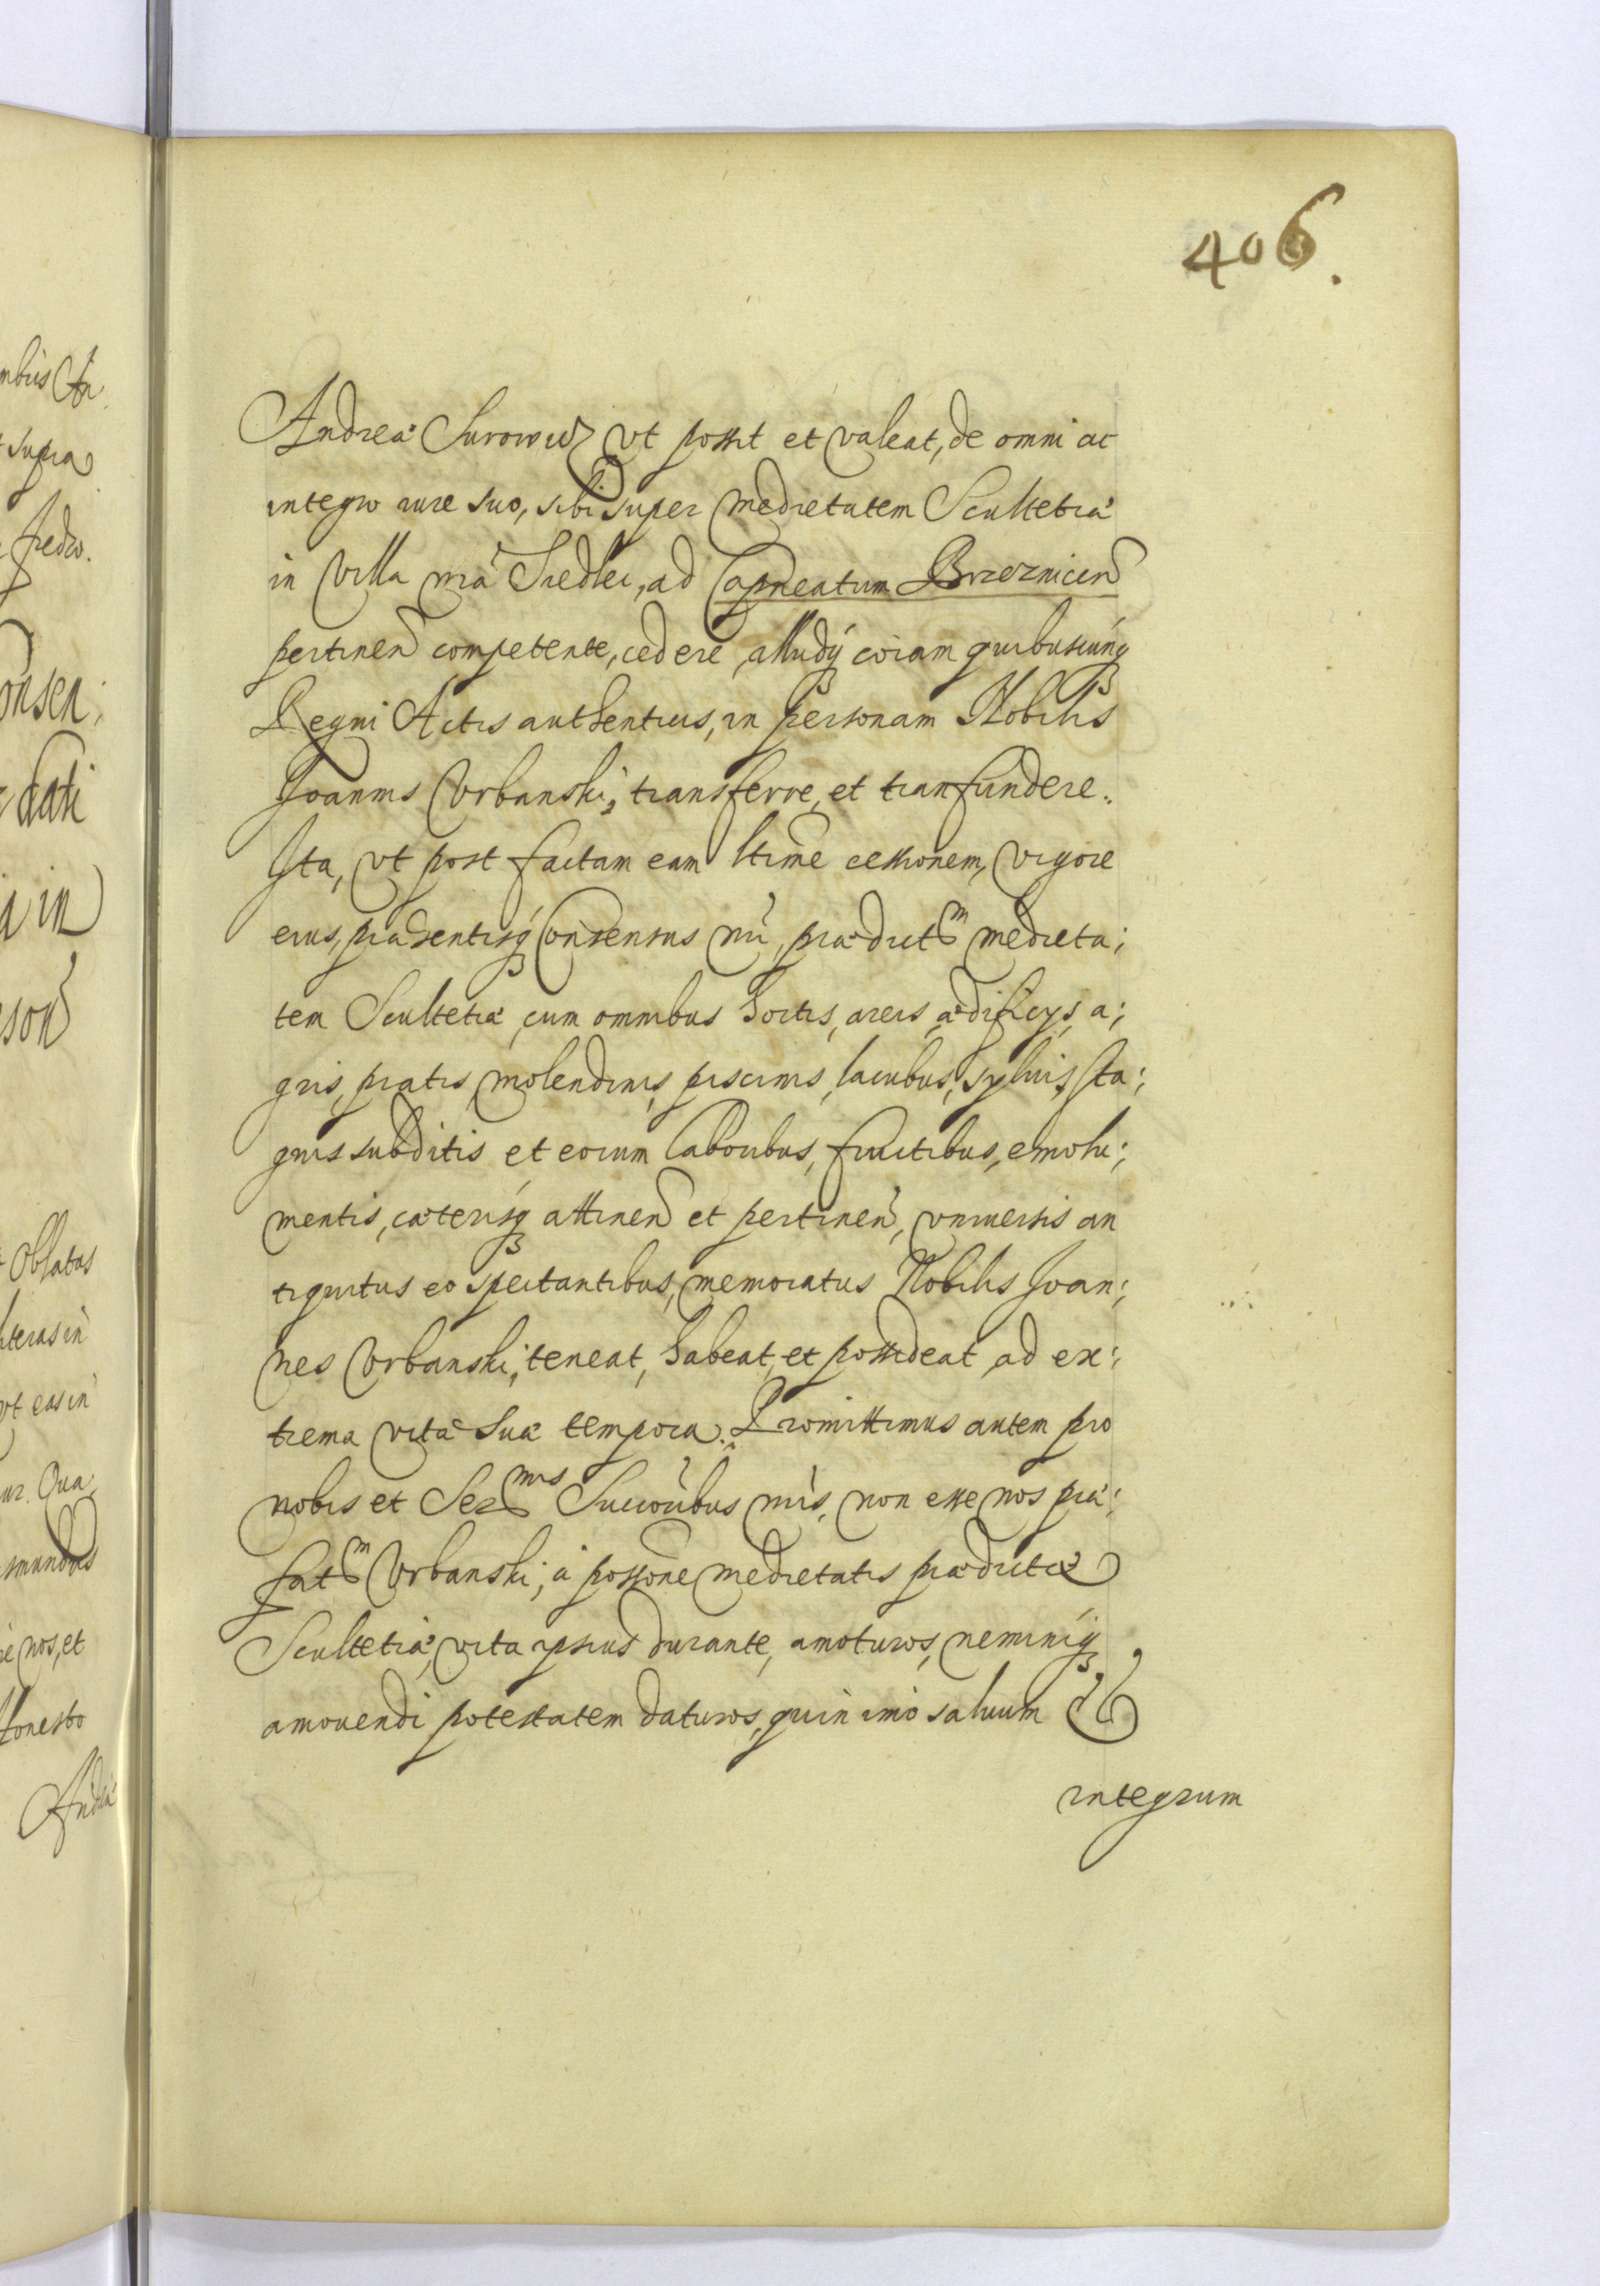 406.
Andreæ Surowicz vt possit et valeat, de omni ac
integro iure suo, sibi super medietatem Scultetiæ
in Villa nrã Siedlec, ad Capneatum Brzeznicen
pertinen competente, cedere, illudq coram quibuscunq
Regni Actis authenticis, in personam Nobilis
Joannis Vrbanski, transferre, et tranfundere.
Jta, vt post factam eam ltime cessionem, vigore
eius, præsentisq Consensus nri, prædictm medieta;
tem Scultetiæ, cum omnibus hortis, areis, ædificijs, a;
gris, pratis, molendinis, piscinis, lacubus, syluis, sta;
gnis subditis et eorum laboribus, fructibus, emolu;
mentis, cæterisq attinen et pertinen, vniuersis an
tiquitus eo spectantibus, memoratus Nobilis Joan;
nes Vrbanski, teneat, habeat, et possideat ad ex;
trema vitæ suæ tempora. Promittimus autem pro
nobis et Sermis Succoribus nris, non esse nos præ;
fatm Vrbanski, à possone medietatis prædictæ
Scultetiæ, vita ipsius durante, amoturos, neminiq
amouendi potestatem daturos, quin imò saluum et
integrum
mbus An
supra
Fredro.
onsen;
dati
in
son
Oblatas
literas in
vt eas in
Qua
smundus
nos, et
Honesto
Andreæ